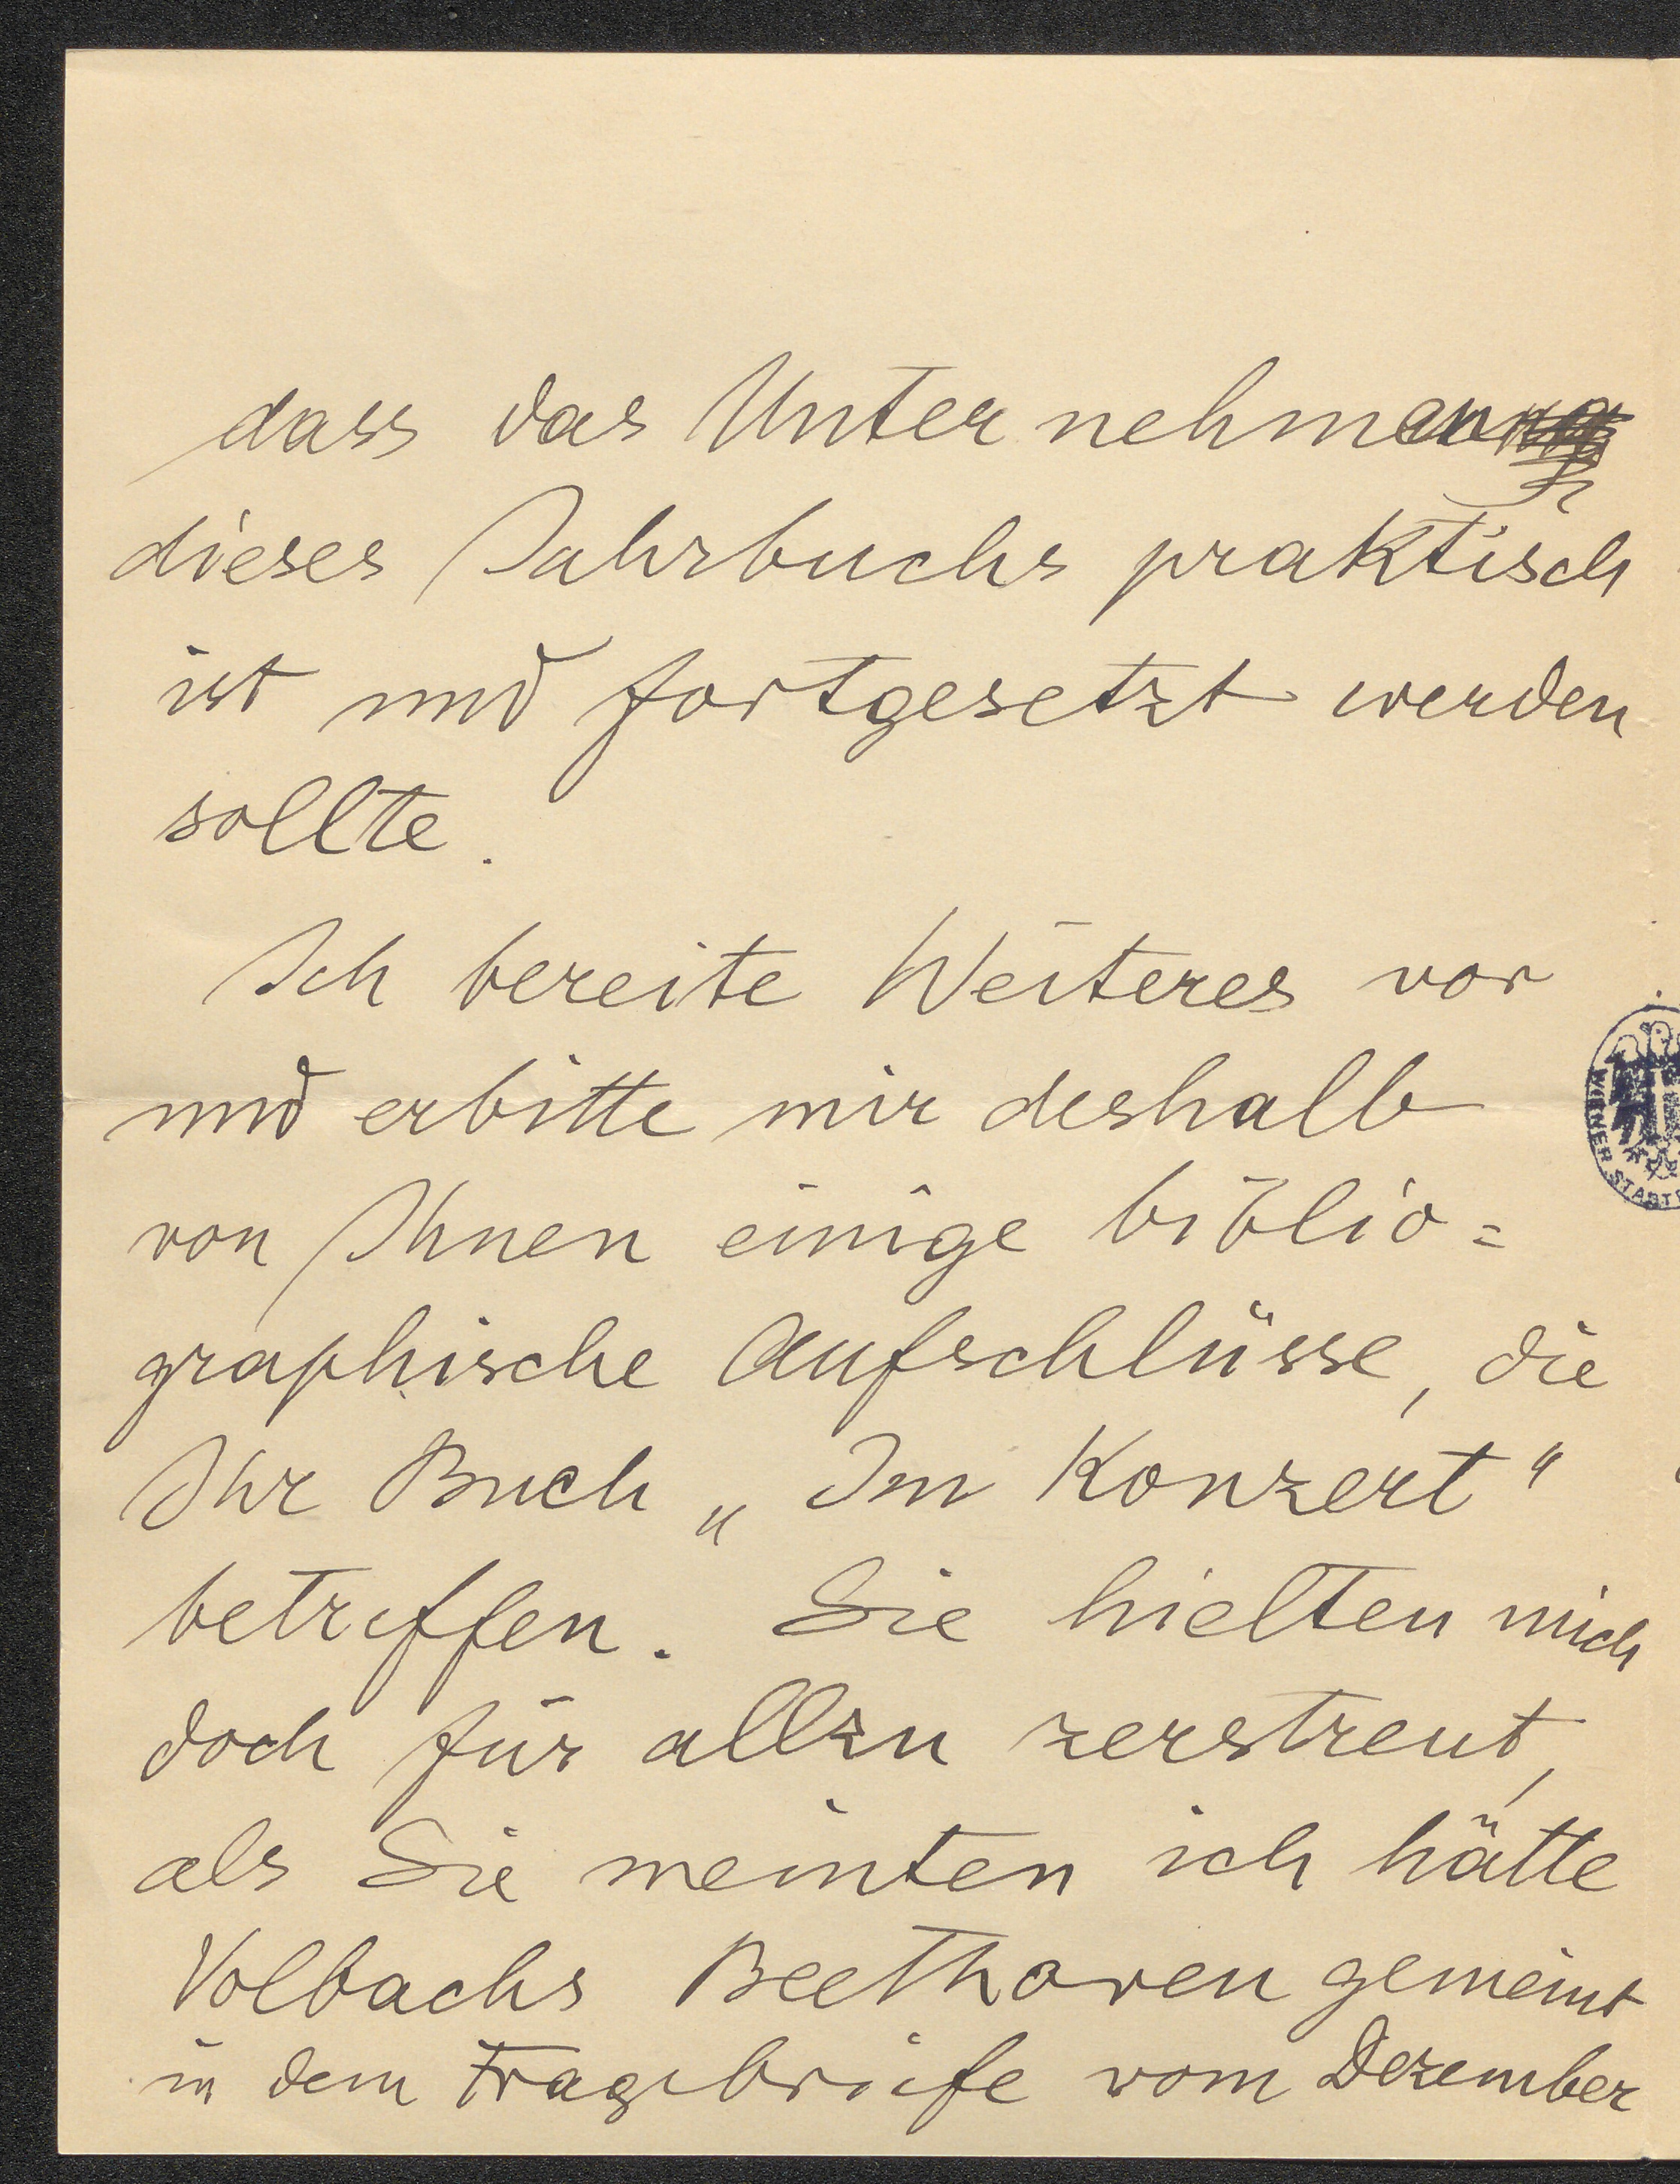 dass das Unternehmen
dieses Jahrbuchs praktisch
ist und fortgesetzt werden
sollte.
Ich bereite Weiteres vor
und erbitte mir deshalb
von Ihnen einige biblio=
graphische Aufschlüsse, die
Ihr Buch „Im Konzert“
betreffen. Sie hielten mich
doch für allzu zerstreut,
als Sie meinten ich hätte
Volbachs Beethoven gemeint
in dem Fragebriefe vom Dezember
WIENER STADT